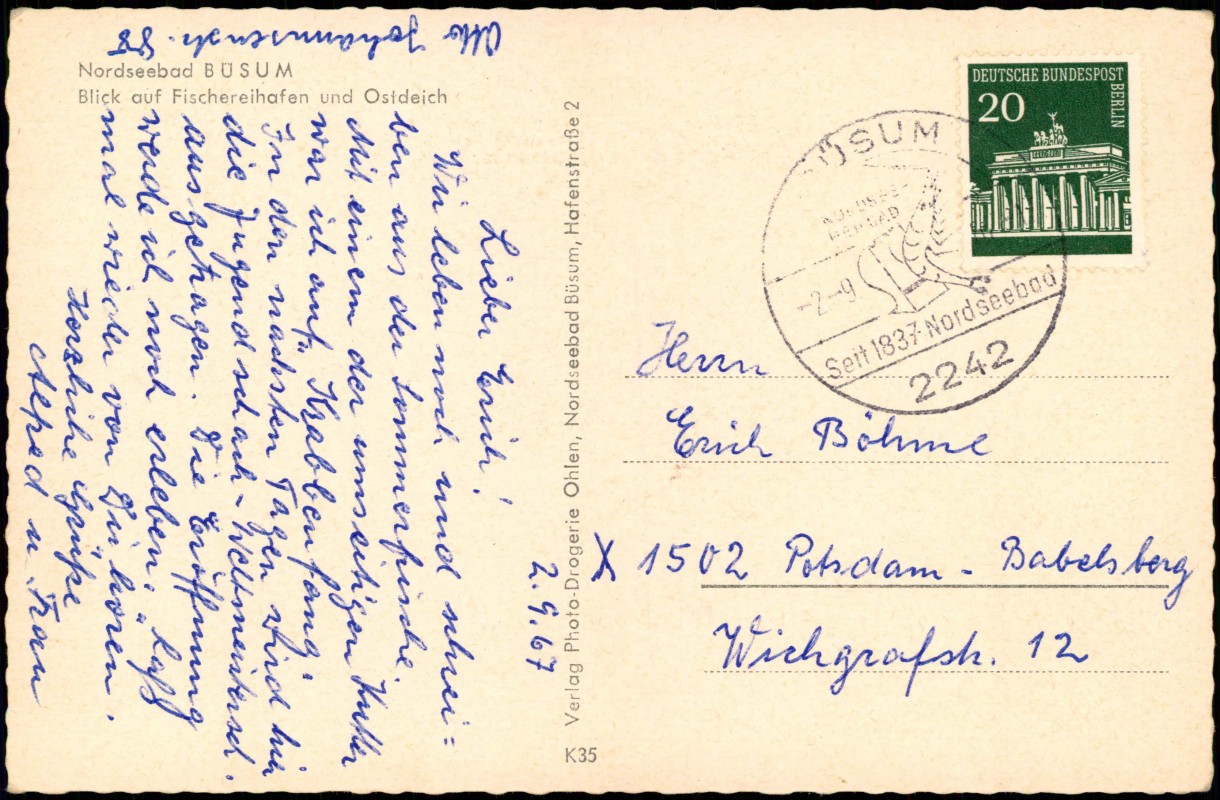 Otto Johannsenstr. 88
Nordseebad BÜSUM
Blick auf Fischereihafen und Ostdeich
2.9.67
Lieber Erich!
Wir leben noch und schrei=
ben aus der Sommerfrische.
Mit einem der umseitigen Kutter
war ich auf „Krabbenfang".
In den nächsten Tagen wird hier
die Jugendschach-Weltmeistersch.
ausgetragen. Die Eröffnung
werde ich noch erleben.
mal wieder von Dir hören.
Herzliche Grüße
Alfred u. Frau
Verlag Photo-Drogerie Ohlen, Nordseebad Büsum, Hafenstraße 2
K35
DEUTSCHE BUNDESPOST
BERLIN
20
BÜSUM
-2.-9
Seit 1837 Nordseebad
2242
Herrn
Erich Böhme
X 1502 Potsdam - Babelsberg
Wichgrafstr. 12